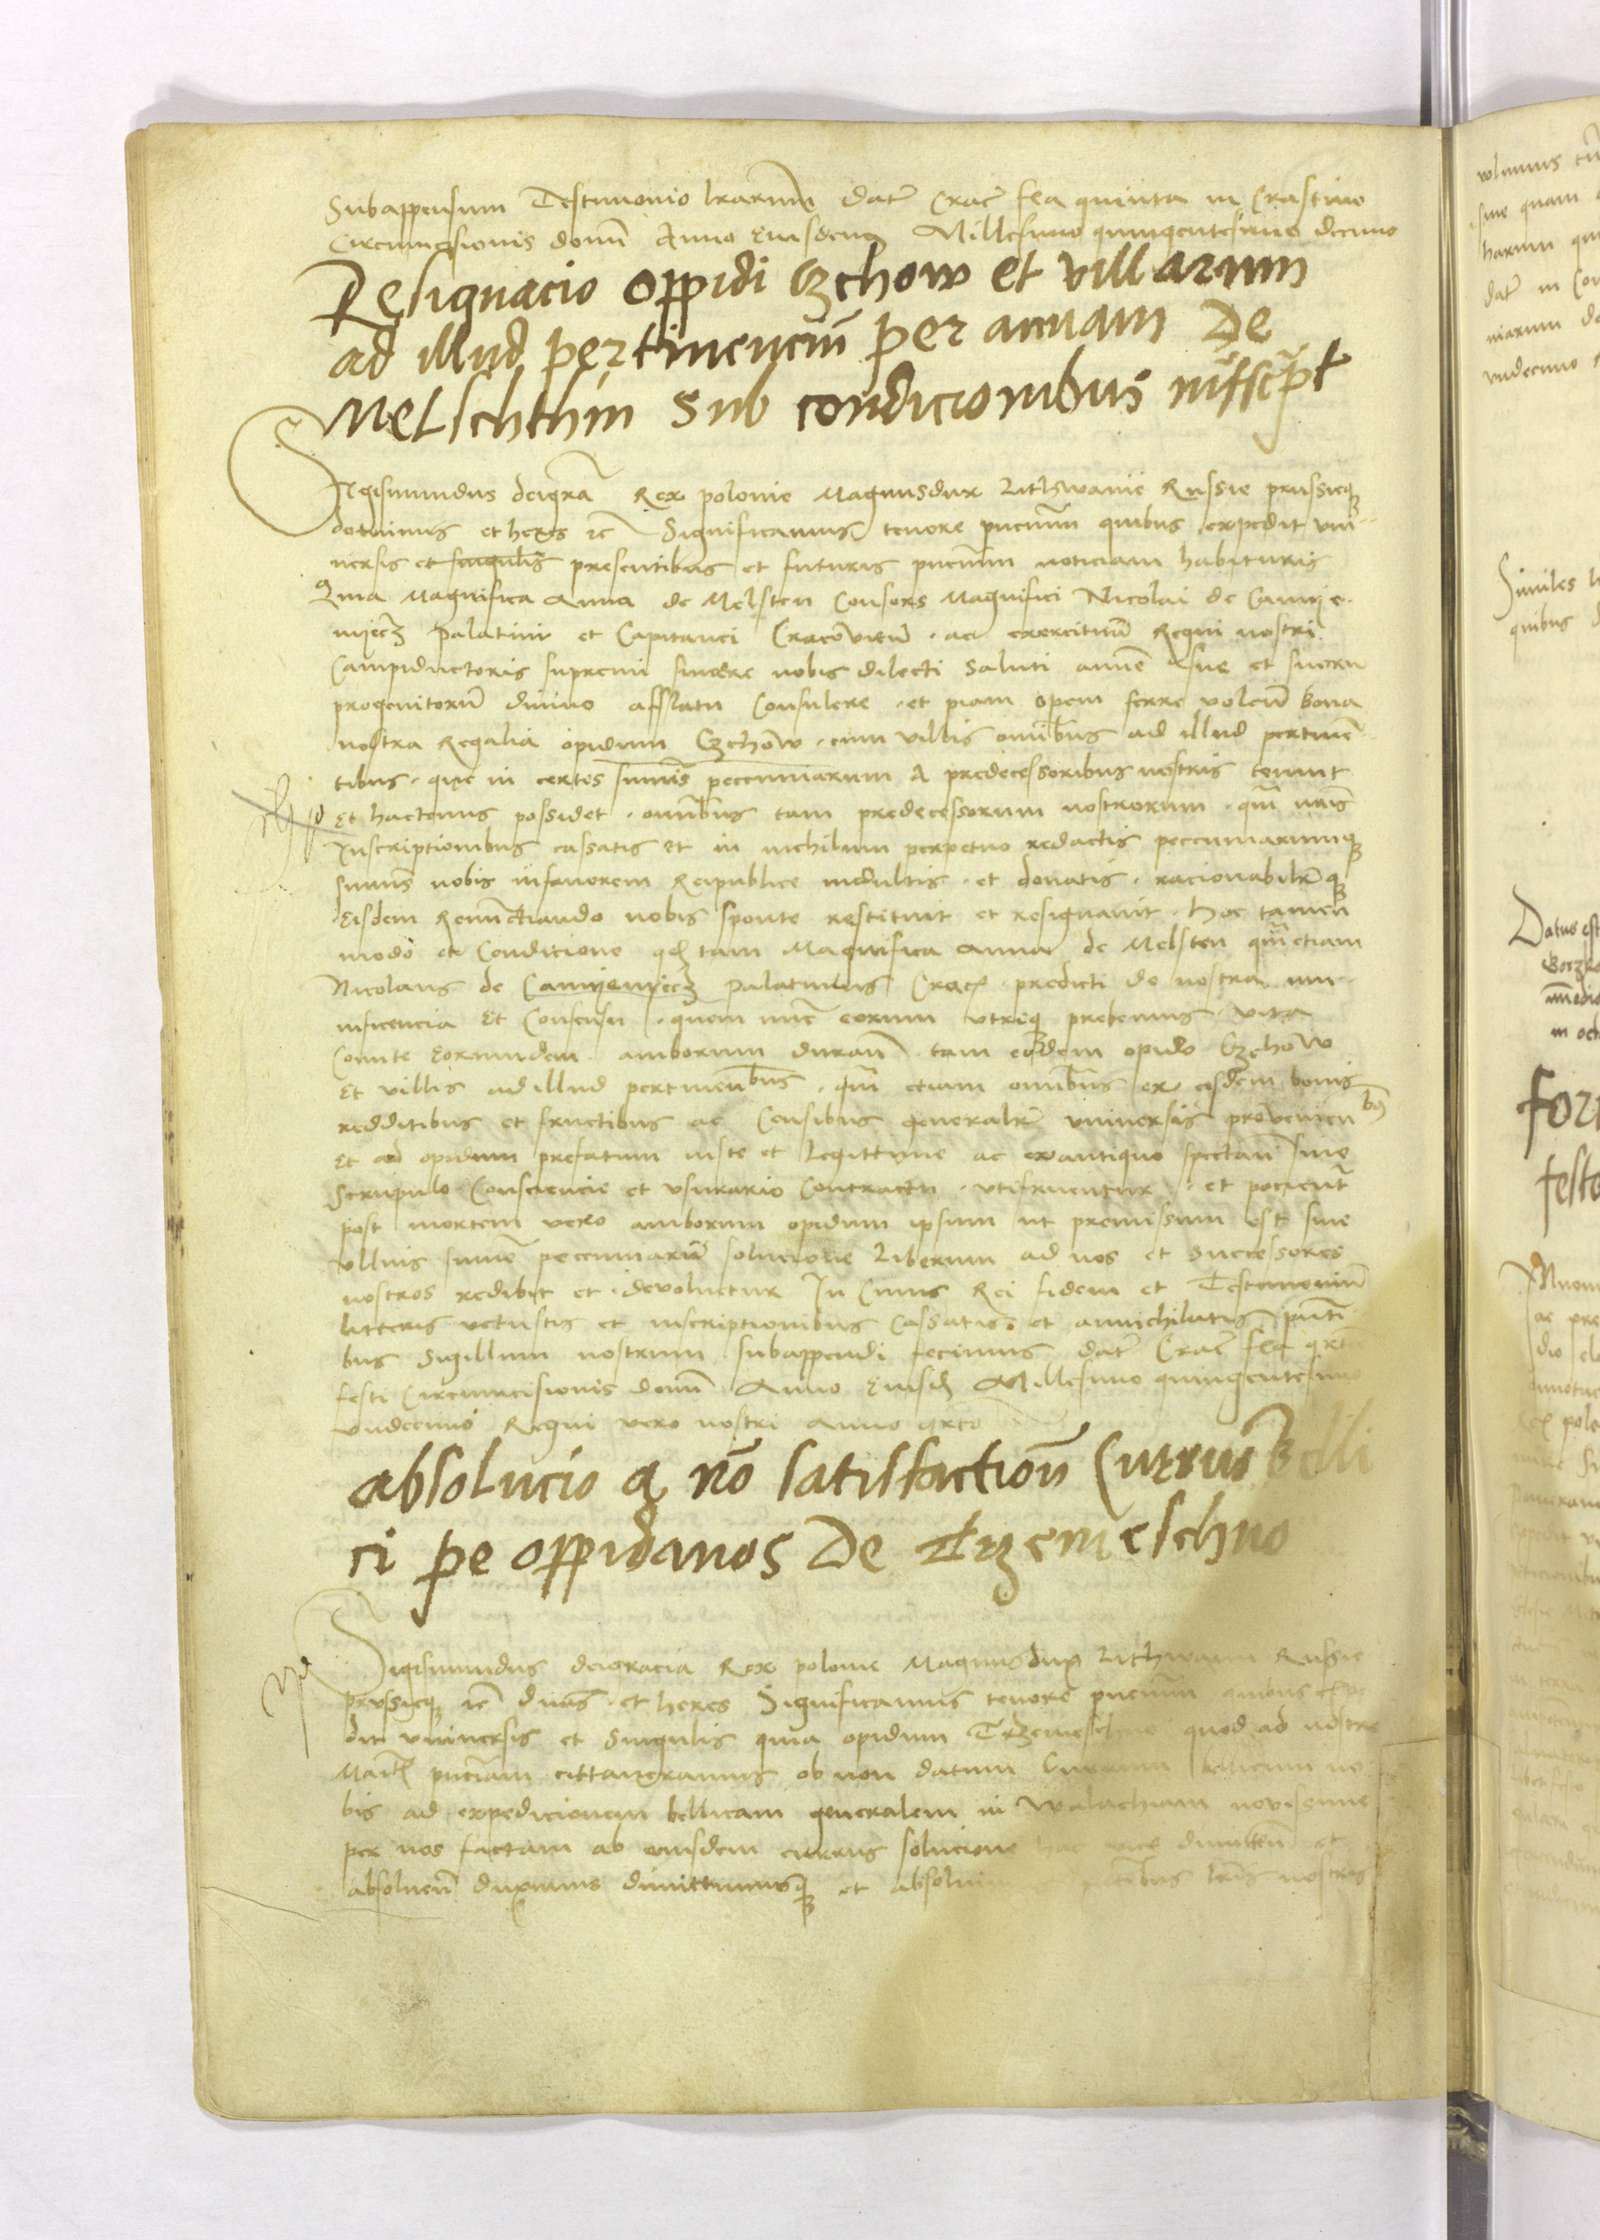 Subappensum Testimonio lrarum̄ dat̄ Crac̄ fea quinta in Crastino
Circumcisionis domī Anno Eiusdem Millesimo quingentesimo decimo
Resignacio oppidi Czchow et villarum
ad illud pertinenciū per annam De
Melschthin sub condicionibus infscrpt
Sigismundus deigrā Rex polonie Magnusdux Lithwanie Russie prussieq
dominus et heres ec̄ Significamus tenore pncium̄ quibus expedit vni
uersis et singulis presentibus et futuris pncium̄ noticiam habituris
Quia Magnifica Anna de Melsten Consors Magnifici Nicolai de Camye
nyecz Palatini et Capitanei Cracovien̄ ac exercituū Regni nostri
Campiductoris supremi sincere nobis dilecti Saluti anime sue et suorū
progenitorū diuino afflatu Consulere et piam opem ferre volen̄ bona
nostra Regalia opidum Czchow cum villis omībus ad illud pertinen̄
tibus que in certis sum̄is peccuniarum A predecessoribus nostris tenuit
et hactenus possidet omībus tam predecessorum nostrorum qm̄ nrīs
Inscriptionibus cassatis et in nichilum perpetuo redactis peccuniarumq
sum̄is nobis infauorem Reipublice indultis et donatis racionabilrq
Eisdem Renuncciando nobis sponte restituit et resignauit hoc tamen
modo et Condicione qd tam Magnifica Anna de Melsten qm̄ etiam
Nicolaus de Camyenyecz Palatinus Crac predicti de nostra mu
nificencia Et Consensu quem nunc eorum vtriq prebemus vita
Comite Eorumdem amborum duran̄ tam eodem opido Czchow
Et villis adillud pertinenbus qm̄ etiam omībus ex eisdem bonis
redditibus et fructibus ac Censibus generalr̄ vniuersis prouenien bus
Et ad opidum prefatum iuste et legittime ac exantiquo spectan̄ sine
Scrupulo Consciencie et vsurario Contractu vtifruentur et pocient̄
post mortem vero amborum opidum ipsum ut premissum est sine
vllius sum̄e peccuniarū solucione Liberum ad nos et Successores
nostros redibit et deuoluetur In Cuius Rei fidem et Testimoniū
litteris vetustis et inscriptionibus Cassatis et annichilatis pn̄ti
bus Sigillum nostrum subappendi fecimus dat̄ Crac̄ fea qrta
festi Circumcisionis domī Anno Eiusd Millesimo quingentesimo
vndecimo Regni vero nostri Anno qrto
absolucio a nō satisfactiōn Currus belli
ci pe oppidanos De Trzemeschno
Sigismundus deigracia Rex polonie Magnusdux Lithwanie Russie
prussieq ec̄ dn̄us et heres Significamus tenore pncium̄ quibus expe
dit vniuersis et singulis quia opidum Trzemeschno quod ad nostre
Mai̅t pn̄ciam cittaueramus ob non datum Currum bellicum no
bis ad expedicionem bellicam generalem in Walachiam nouissime
per nos factam ab eiusdem currus solucione hac vice dimitten̄ et
absoluen̄ duximus dimittimusq et absoluimus pn̄tibus lrīs nostris